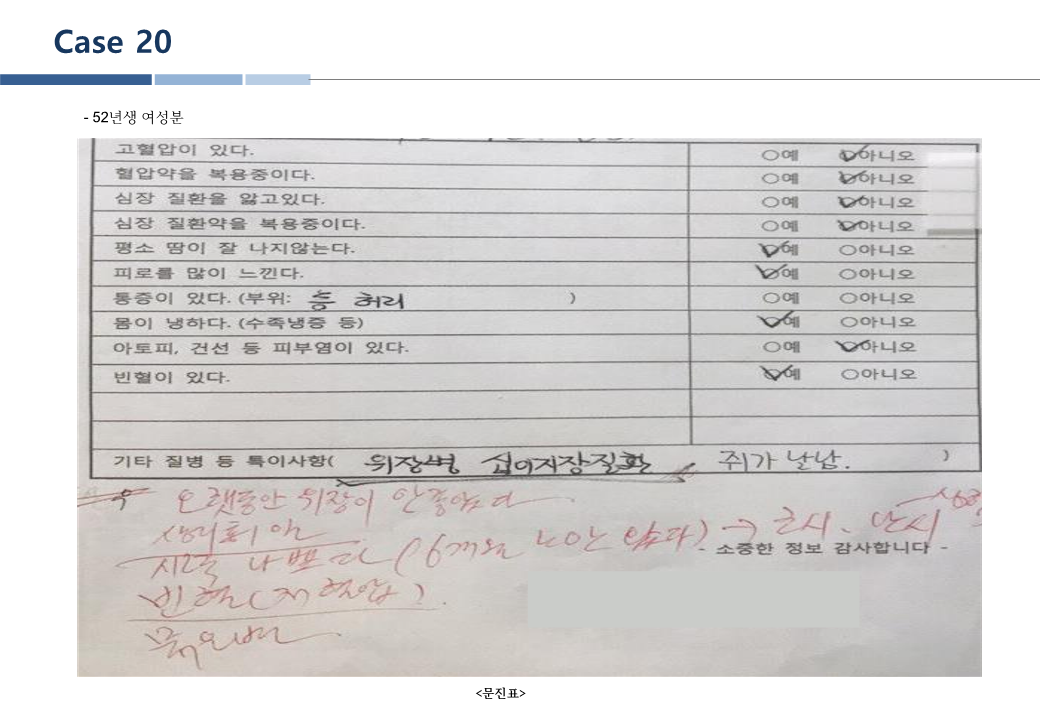 Case 20
- 52년생 여성분
고혈압이 있다. ○예 ○아니오
혈압약을 복용중이다. ○예 ○아니오
심장 질환을 앓고있다. ○예 ○아니오
심장 질환약을 복용중이다. ○예 ○아니오
평소 땀이 잘 나지않는다. ○예 ○아니오
피로를 많이 느낀다. ○예 ○아니오
통증이 있다. (부위: 등 허리 ) ○예 ○아니오
몸이 냉하다. (수족냉증 등) ○예 ○아니오
아토피, 건선 등 피부염이 있다. ○예 ○아니오
빈혈이 있다. ○예 ○아니오
기타 질병 등 특이사항( 위장병 십이지장질환 쥐가 날남. )
오랫동안 위장이 안좋았다
시력 나쁘다 (6개월
- 소중한 정보 감사합니다 -
빈혈(저혈압).
<문진표>